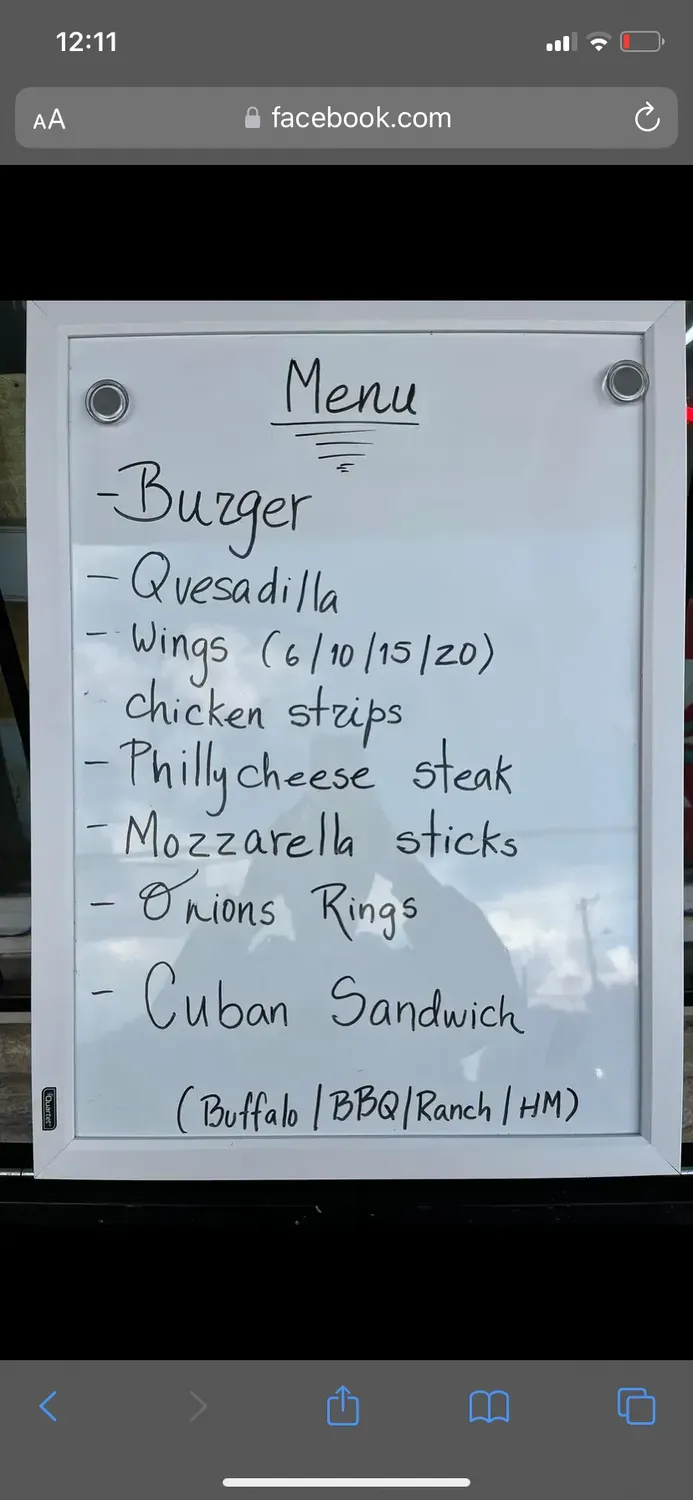 12:11
AA facebook.com
Menu
- Burger
- Quesadilla
- Wings (6/10/15/20)
chicken strips
- Philly cheese steak
- Mozzarella sticks
- Onions Rings
- Cuban Sandwich
(Buffalo/BBQ/Ranch/HM)
Quartet